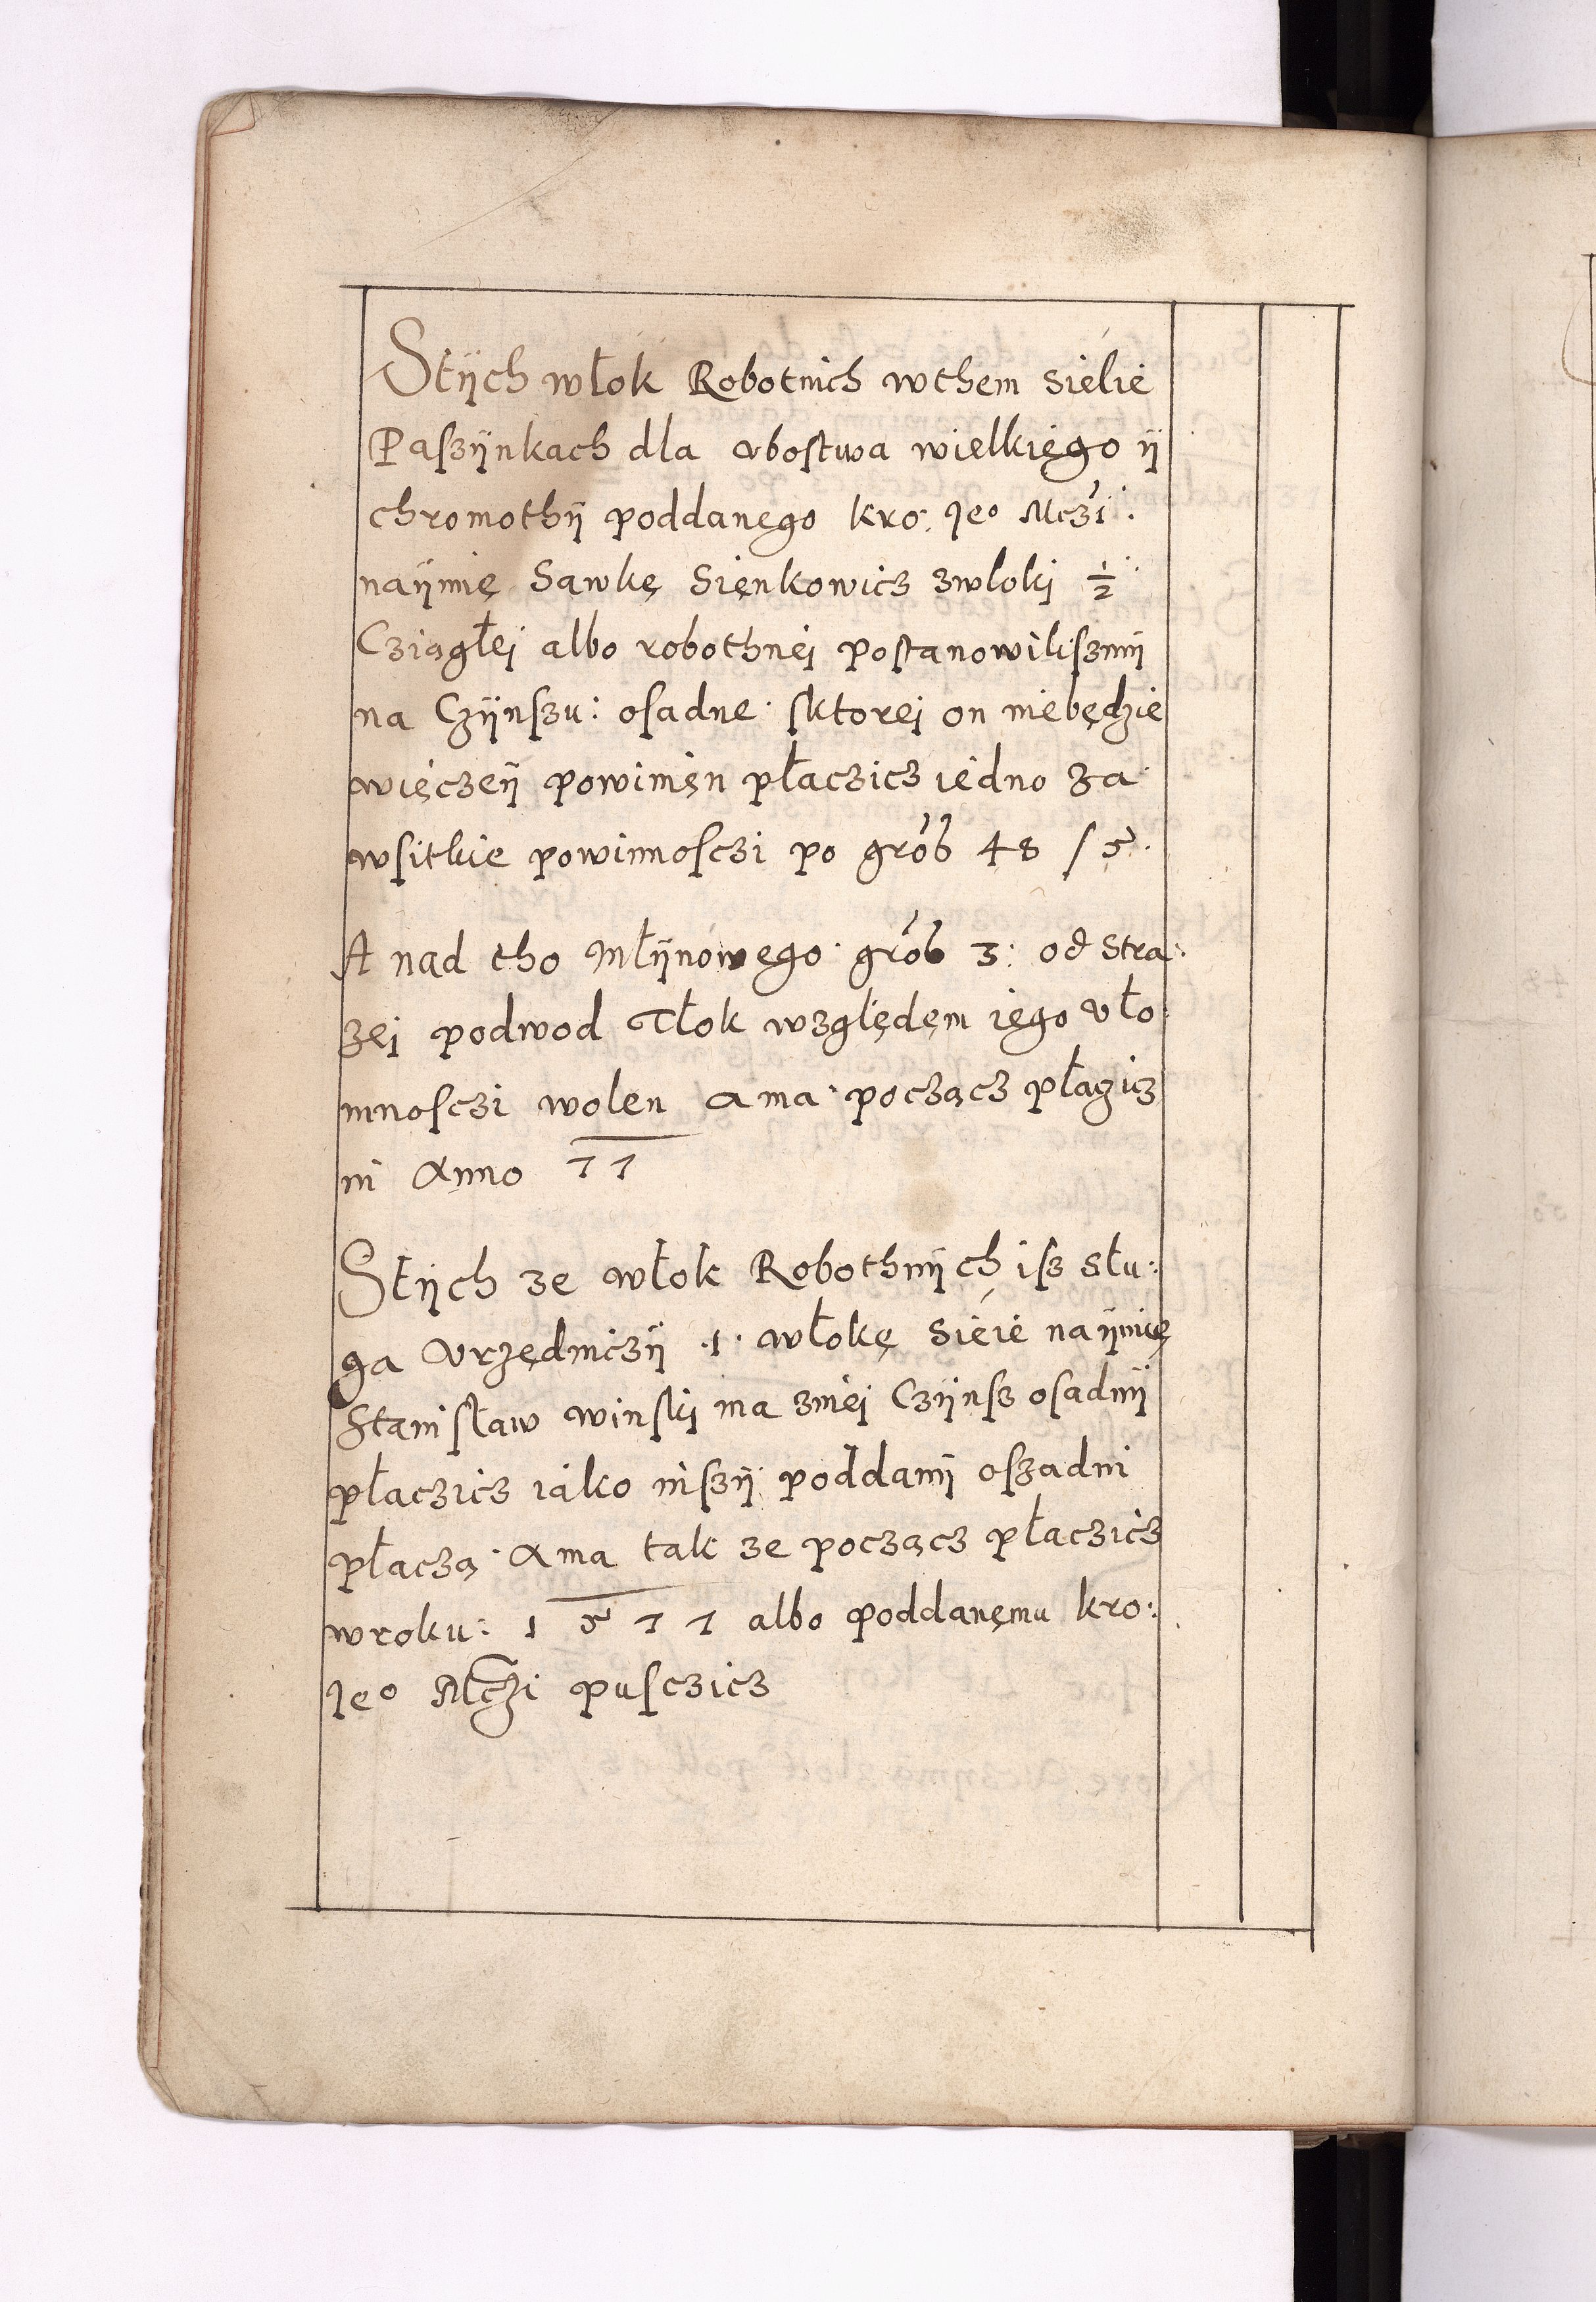 Stÿch włok Robotnich wthem sielie
Paszÿnkach dla vbostwa wielkiego ÿ
chromothÿ poddanego kro: Jeo Mczi:
naÿmię Sawkę Sienkowicz zwłoki ½
Cziągłej albo robothnej postanowiliszmÿ
na Czÿnszu: osadne sktorej on niebędzie
więczeÿ powinięn płaczicz iedno za
wsitkie powinnosczi po grob 48 / 5.
A nad tho Młÿnowego grob 3: od stra:
zej podwod Tłok względęm iego vło
mnosczi wolen a ma począcz płazicz
in Anno 77
Stÿch ze włok Robothnÿch isz słu:
ga vrzędniczÿ .1. włokę sieie naÿmię
Stanisław winski ma zniej Czÿnsz osadnÿ
płaczicz iako inszÿ poddani oszadni
płaczą A ma tak ze począcz płaczicz
wroku: 1 5 7 7 albo poddanęmu kro:
Jeo Mczi pusczicz